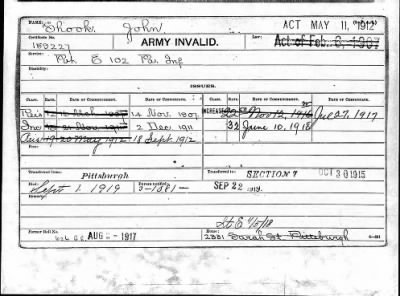 NAME: Shook, John ACT MAY 11, 1912
Certificate No. Law:
159227 ARMY INVALID. Act of Feb. 6, 1907
Service: Pvt E 102 Pa Inf
Disability:
ISSUES.
CLASS. RATE. DATE OF COMMENCEMENT. DATE OF CERTIFICATE. CLASS. RATE. DATE OF COMMENCEMENT. DATE OF CERTIFICATE.
Reis 12 Mch 1907 14 Nov. 1907 INCREASE 22 Nov 12, 1916 Jul 27, 1917
Inc 21 Nov 1911 2 Dec 1911 32 June 10, 1918
Reis 19 20 May 1912 18 Sept. 1912
Transferred from Pittsburgh Transferred to SECTION 7 OCT 30 1915
Died: Sept 1 1919 3-1081 SEP 22 1919
Former Roll No. AUG 1917 2331 Sarah St Pittsburgh